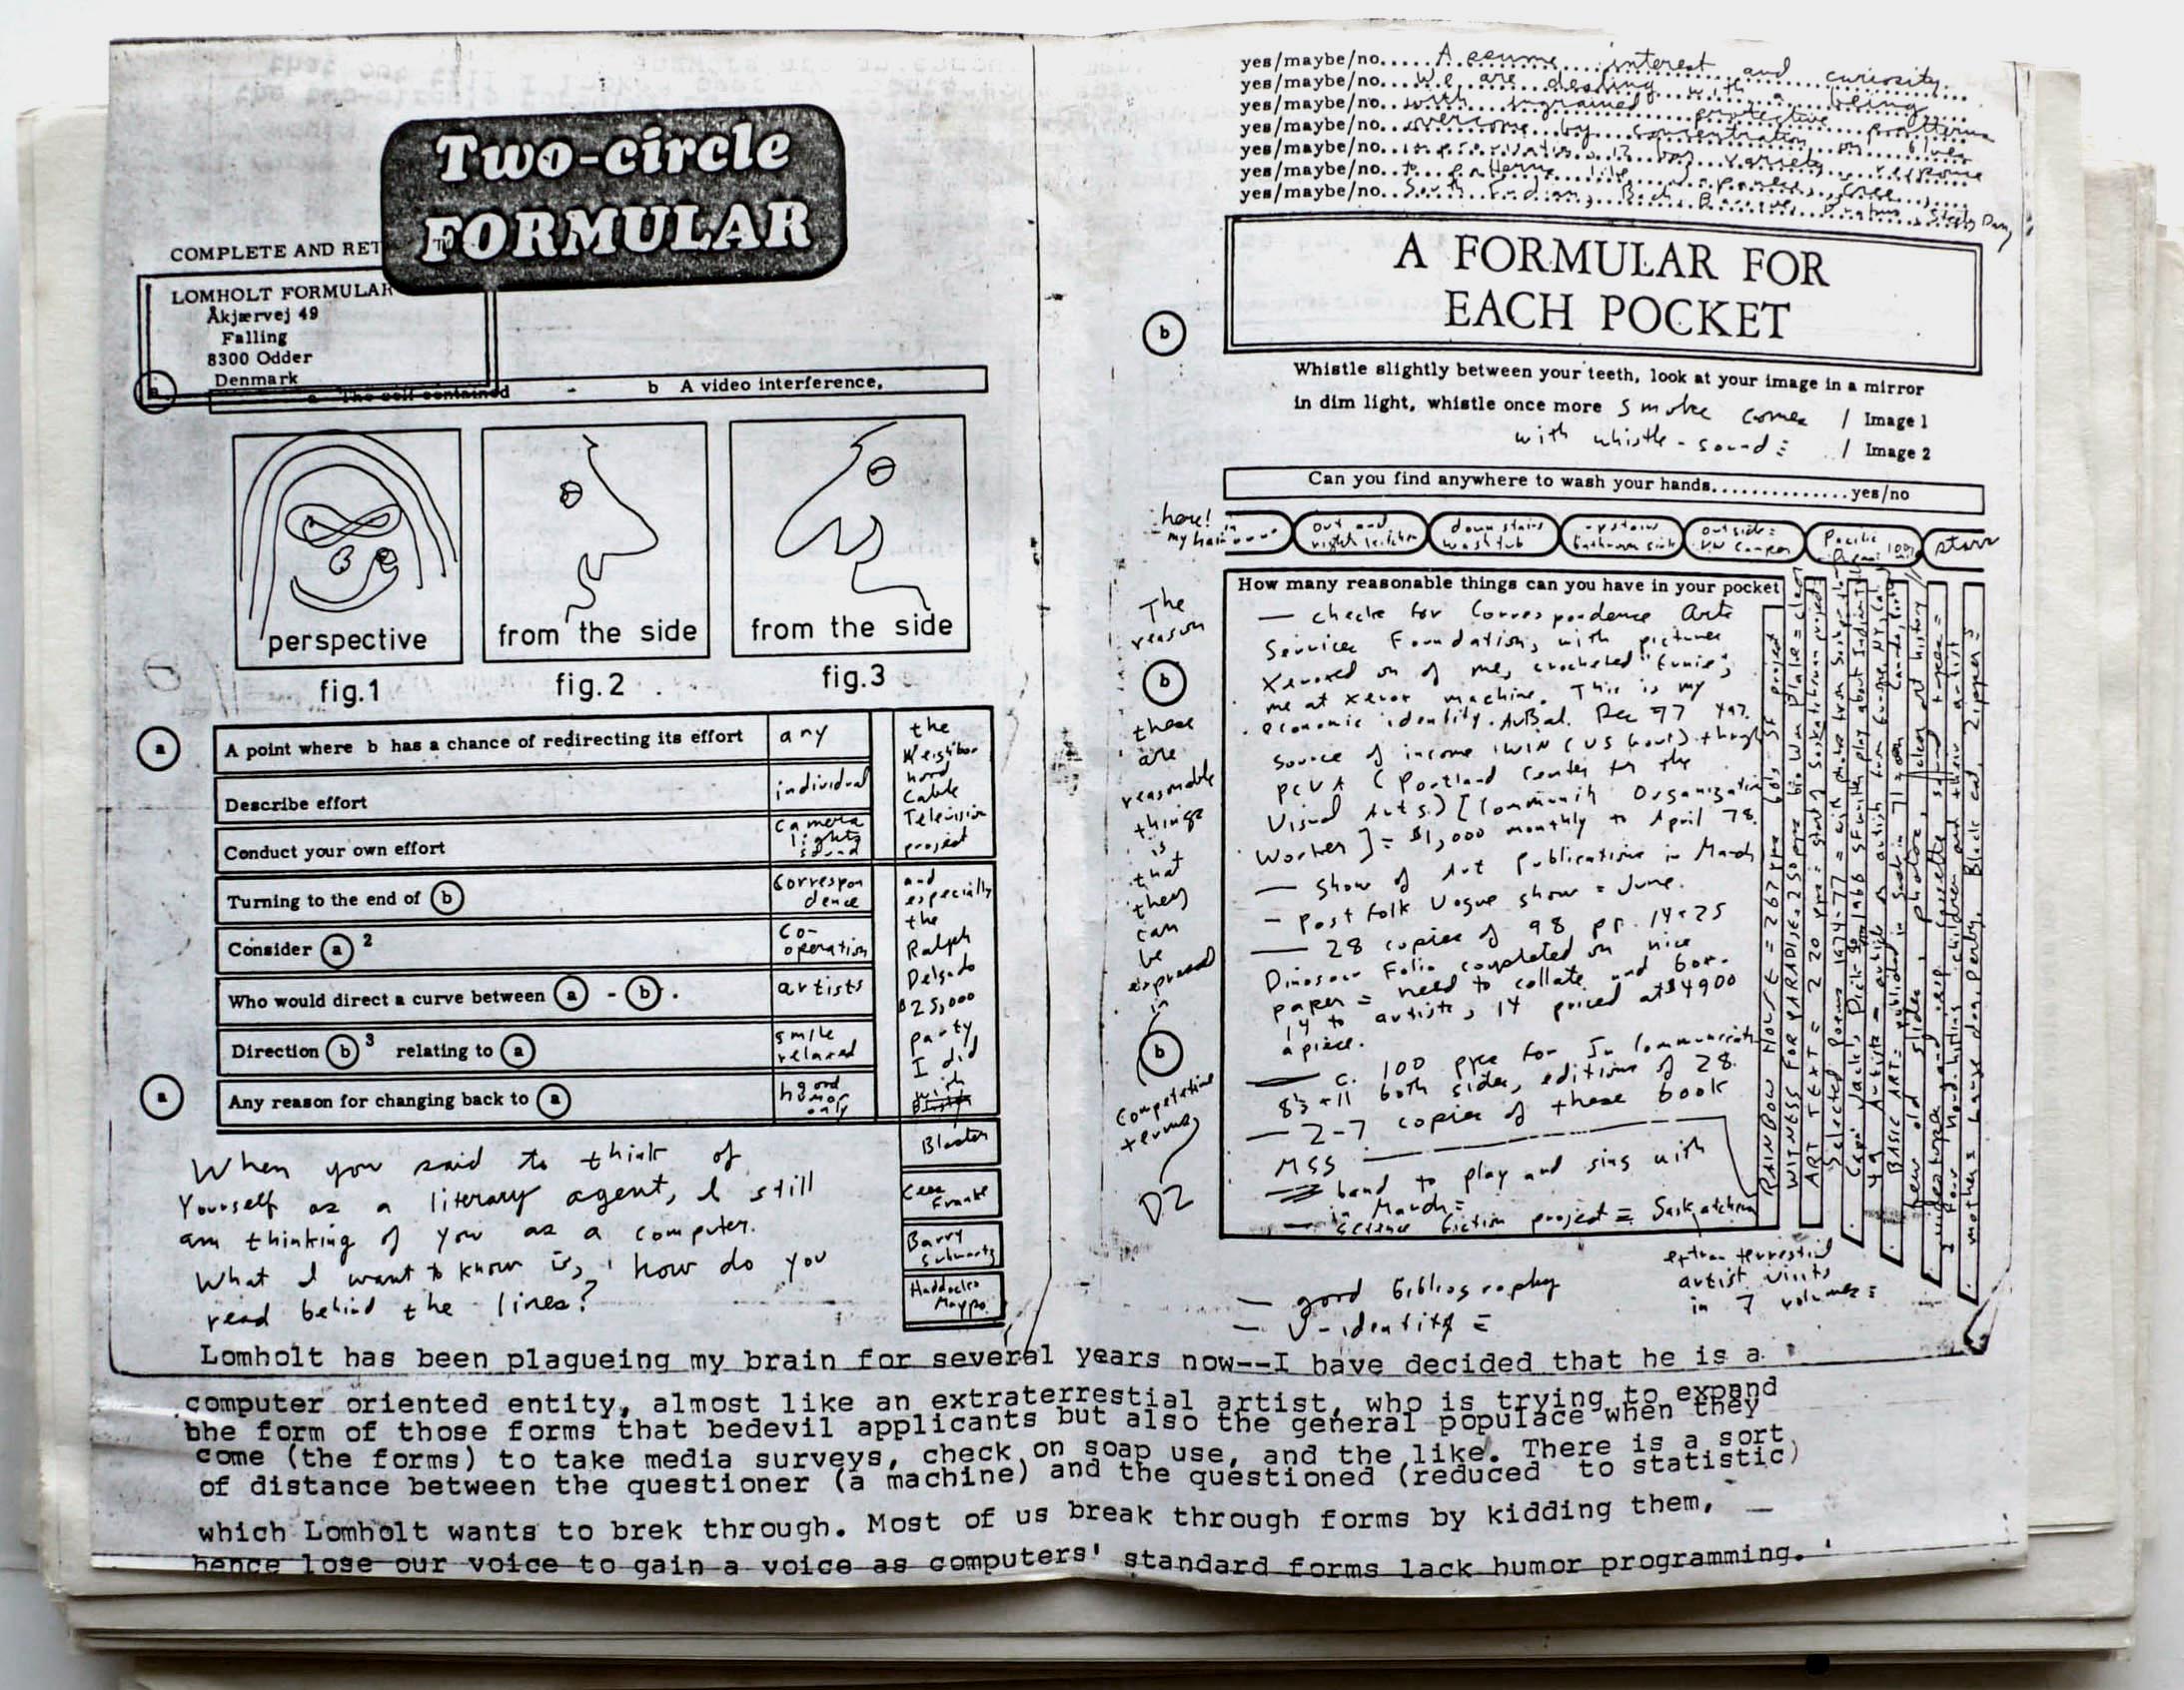 Two-circle
FORMULAR
COMPLETE AND RET
LOMHOLT FORMULAR
Åkjærvej 49
Falling
8300 Odder
Denmark
a The self contained - b A video interference.
perspective
from the side
from the side
fig.1
fig.2
fig.3
a
A point where b has a chance of redirecting its effort any
Describe effort individual
Conduct your own effort camera lights sound
Turning to the end of b correspondence
Consider a 2 co-operation
Who would direct a curve between a - b . artists
Direction b 3 relating to a smile relaxed
a
Any reason for changing back to a good humor only
the
Neighbor
hood
Cable
Television
project
and
especially
the
Ralph
Delgado
$25,000
party
I did
with
Blaster
Cees
Franke
Barry
Schwartz
Haddock
Maypo
When you said to think of
Yourself as a literary agent, I still
am thinking of you as a computer.
What I want to know is, how do you
read behind the lines?
yes/maybe/no..... Assume interest and curiosity.
yes/maybe/no... We are dealing with a being
yes/maybe/no... with ingrained protective patterns
yes/maybe/no... overcome by concentration on blues
yes/maybe/no... improvisation, 12 bar variety, response
yes/maybe/no... to patterns like Japanese, Cree,
yes/maybe/no... South Indian, Bach, Baroque, Brahms, Steely Dan,
A FORMULAR FOR
EACH POCKET
b
Whistle slightly between your teeth, look at your image in a mirror
in dim light, whistle once more smoke comes / Image 1
with whistle-sound= / Image 2
Can you find anywhere to wash your hands..............yes/no
here! in my hair
out and right kitchen
down stairs wash tub
upstairs bathroom sink
outside= VW camper
Pacific Ocean 100 mi
stars
The
reason
b
these
are
reasonable
things
is
that
they
can
be
expressed
in
b
Competative
terms
DZ
How many reasonable things can you have in your pocket
— checks for Correspondence Arts
Services Foundation, with pictures
Xeroxed on of me, crocheted "Ernie",
me at xerox machine. This is my
economic identity. AuBal. Dec 77 $97.
source of income WIN (US Govt) though
PCVA (Portland Center for the
Visual Arts.) [Community Organization
Worker] = $1,000 monthly to April 78.
— Show of Art Publications in March
— Post Folk Vogue show = June.
— 28 copies of 98 pp. 14×25
Dinosaur Folio completed on nice
paper = need to collate and box.
14 to artists, 14 priced at $4900
apiece.
— c. 100 pges for In Communicatn
8½×11 both sides, editions of 28.
— 2-7 copies of these book
MSS
band to play and sing with
in March=
— science fiction project = Saskatchewan
extra terrestrial
artist visits
in 7 volumes=
— good bibliography
RAINBOW HOUSE = 267 pge 60's SF project
WITNESS FOR PARADISE = 250 pge
ART TEXT = 220 pges = start of Saskatchewan project
Selected Poems 1974-77 =
Lomholt has been plagueing my brain for several years now--I have decided that he is a
computer oriented entity, almost like an extraterrestial artist, who is trying to expand
bhe form of those forms that bedevil applicants but also the general populace when they
come (the forms) to take media surveys, check on soap use, and the like. There is a sort
of distance between the questioner (a machine) and the questioned (reduced to statistic)
which Lomholt wants to brek through. Most of us break through forms by kidding them,
hence lose our voice to gain a voice as computers' standard forms lack humor programming.